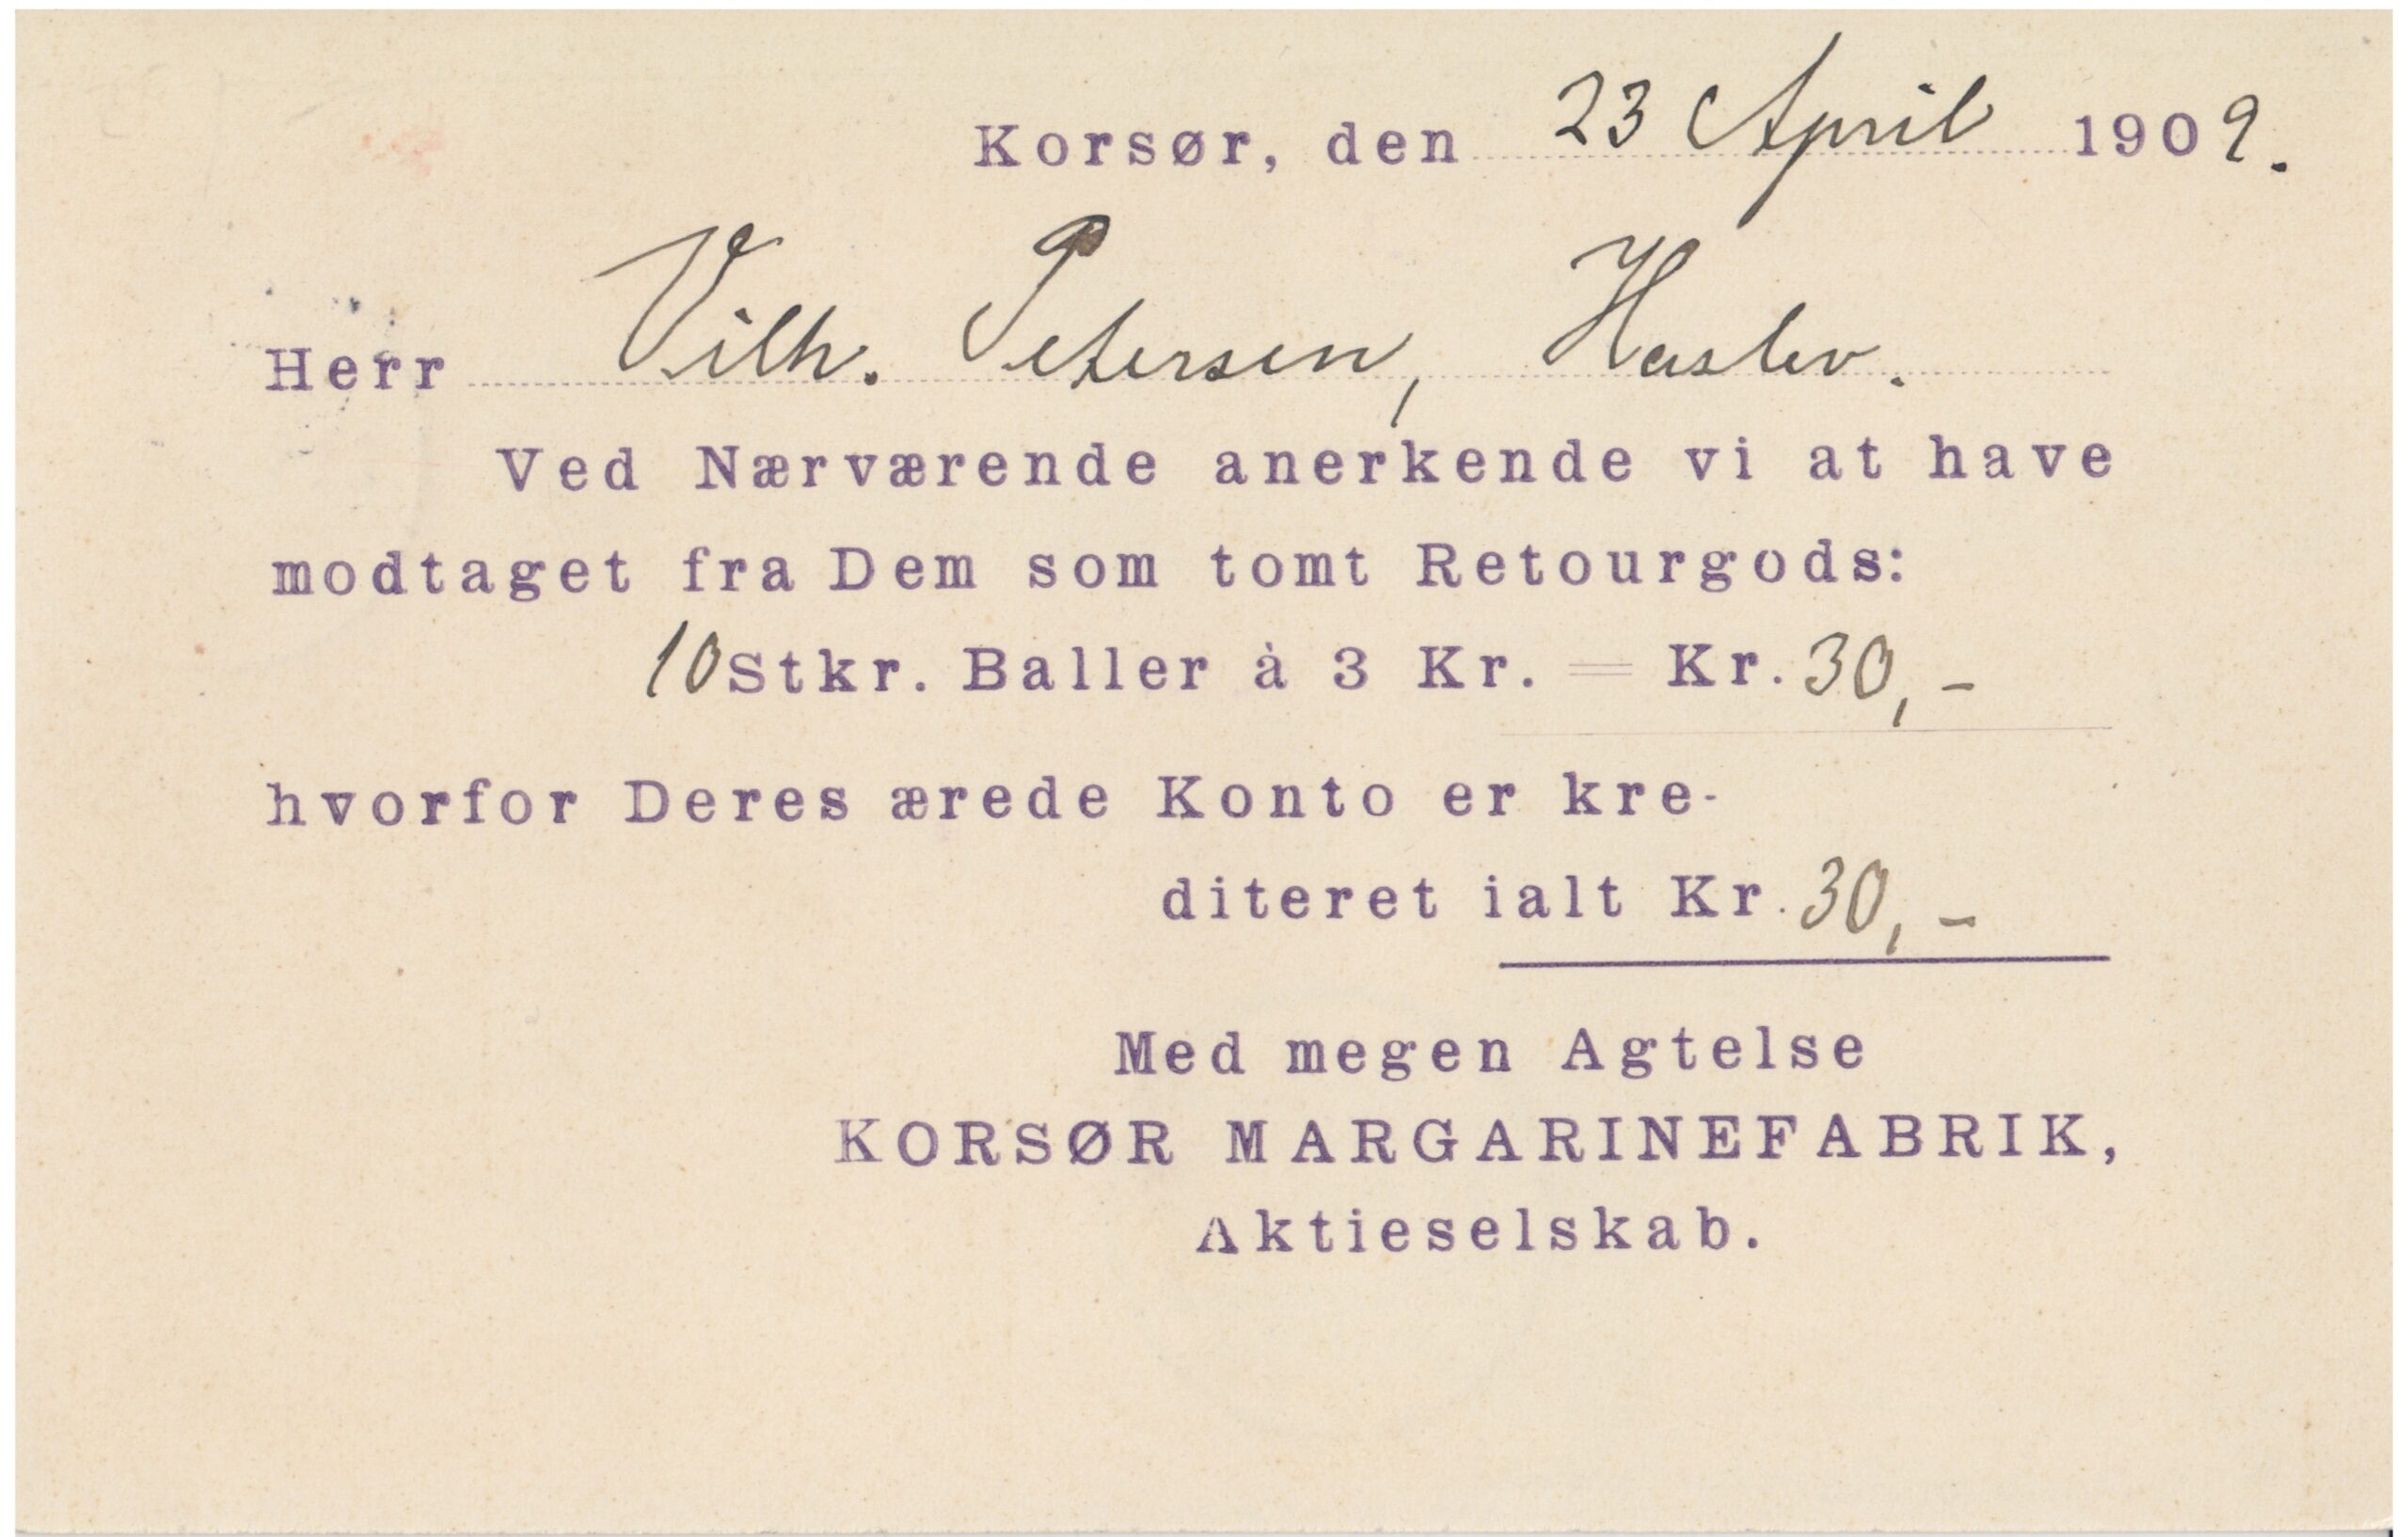 Korsør, den 23 April 1909.
Herr Vilh. Petersen, Haslev.
Ved Nærværende anerkende vi at have
modtaget fra Dem som tomt Retourgods:
10 Stkr. Baller à 3 Kr. = Kr. 30,-
hvorfor Deres ærede Konto er kre-
diteret ialt Kr. 30,-
Med megen Agtelse
KORSØR MARGARINEFABRIK,
Aktieselskab.